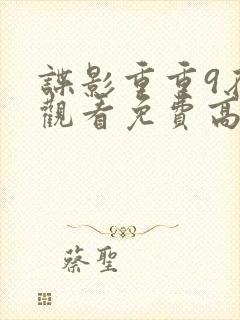 諜影重重9在
觀看免費高
蔡聖